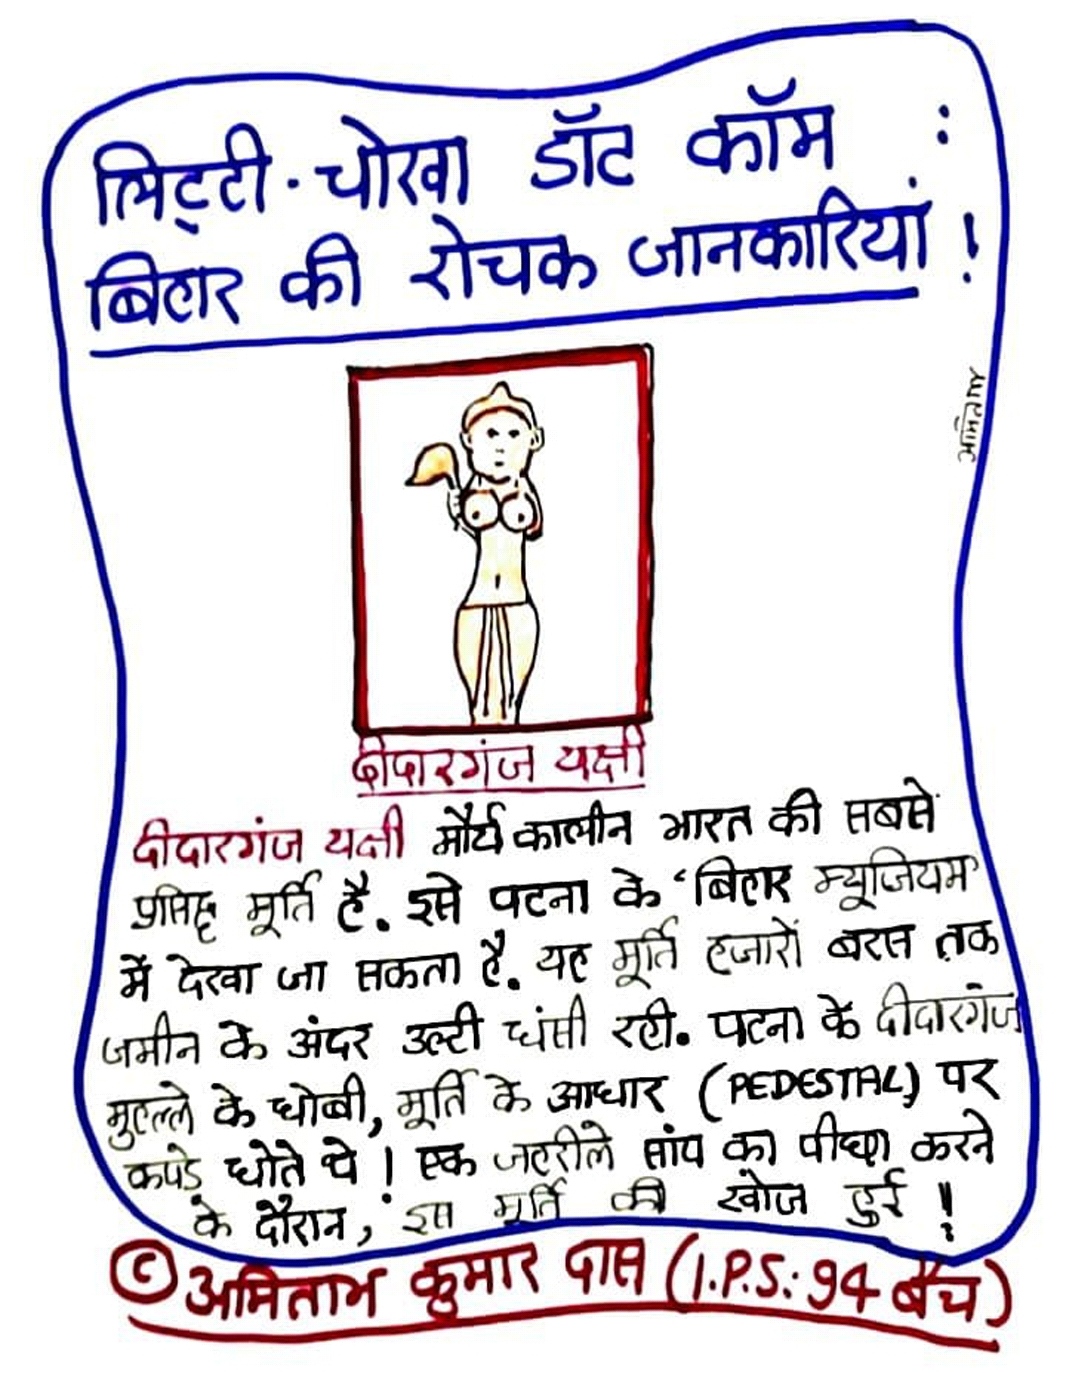 लिट्टी-चोखा डॉट कॉम :
बिहार की रोचक जानकारियां !
अमिताभ
दीदारगंज यक्षी
दीदारगंज यक्षी मौर्य कालीन भारत की सबसे
प्रसिद्ध मूर्ति है. इसे पटना के 'बिहार म्यूजियम'
में देखा जा सकता है. यह मूर्ति हजारों बरस तक
जमीन के अंदर उल्टी धंसी रही. पटना के दीदारगंज
मुहल्ले के धोबी, मूर्ति के आधार (PEDESTAL) पर
कपड़े धोते थे ! एक जहरीले सांप का पीछा करने
के दौरान, इस मूर्ति की खोज हुई !
© अमिताभ कुमार दास (I.P.S.: 94 बैच)